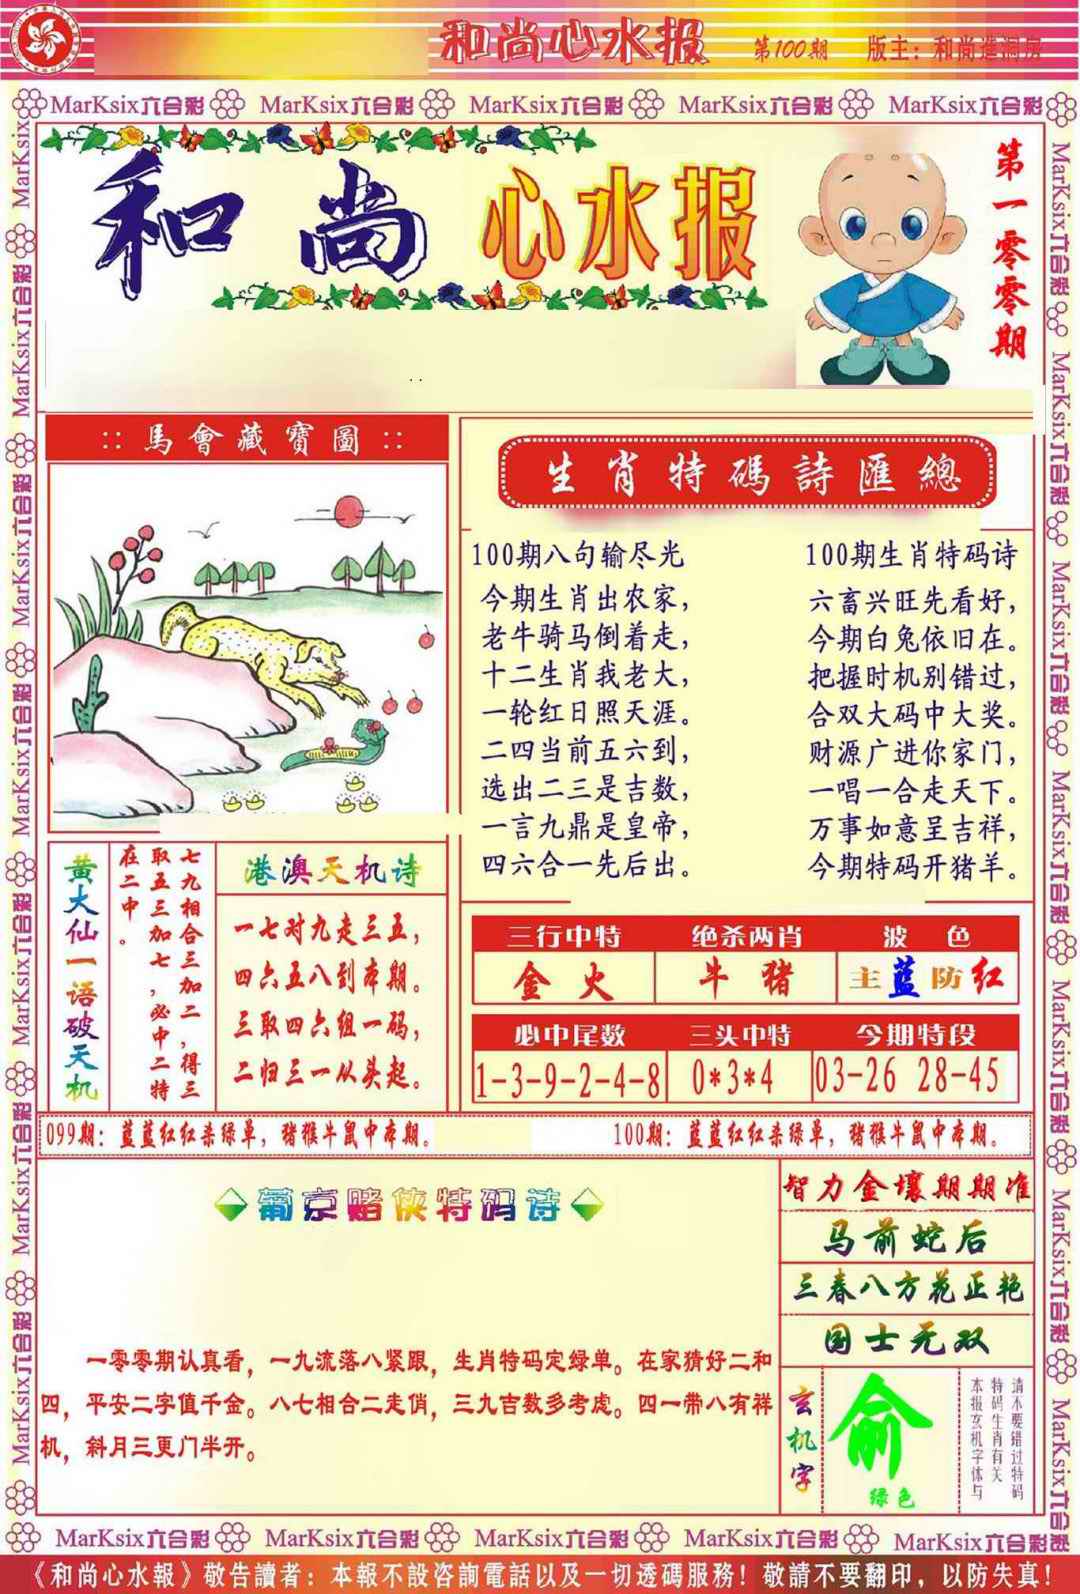 和尚心水报 第100期 版主：和尚進洞房
MarKsix六合彩 MarKsix六合彩 MarKsix六合彩 MarKsix六合彩 MarKsix六合彩
和尚心水报
第一零零期
::馬會藏寶圖::
生肖特碼詩匯總
100期八句输尽光
今期生肖出农家，
老牛骑马倒着走，
十二生肖我老大，
一轮红日照天涯。
二四当前五六到，
选出二三是吉数，
一言九鼎是皇帝，
四六合一先后出。
100期生肖特码诗
六畜兴旺先看好，
今期白兔依旧在。
把握时机别错过，
合双大码中大奖。
财源广进你家门，
一唱一合走天下。
万事如意呈吉祥，
今期特码开猪羊。
黄大仙一语破天机
七九相合三加二，得三
取五三加七，必中二特
在二中。
港澳天机诗
一七对九走三五，
四六五八到本期。
三取四六组一码，
二归三一从头起。
三行中特 绝杀两肖 波色
金火 牛猪 主蓝防红
必中尾数 三头中特 今期特段
1-3-9-2-4-8 0*3*4 03-26 28-45
099期：蓝蓝红红杀绿单，猪猴牛鼠中本期。
100期：蓝蓝红红杀绿单，猪猴牛鼠中本期。
葡京赌侠特码诗
一零零期认真看，一九流落八紧跟，生肖特码定绿单。在家猜好二和
四，平安二字值千金。八七相合二走俏，三九吉数多考虑。四一带八有祥
机，斜月三更门半开。
智力金壤期期准
马前蛇后
三春八方花正艳
国士无双
玄机字
俞
绿色
请不要错过特码
特码生肖有关
本报玄机字体与
MarKsix六合彩 MarKsix六合彩 MarKsix六合彩 MarKsix六合彩 MarKsix六合彩
MarKsix六合彩 MarKsix六合彩 MarKsix六合彩 MarKsix六合彩
《和尚心水報》敬告讀者：本報不設咨詢電話以及一切透碼服務！敬請不要翻印，以防失真！